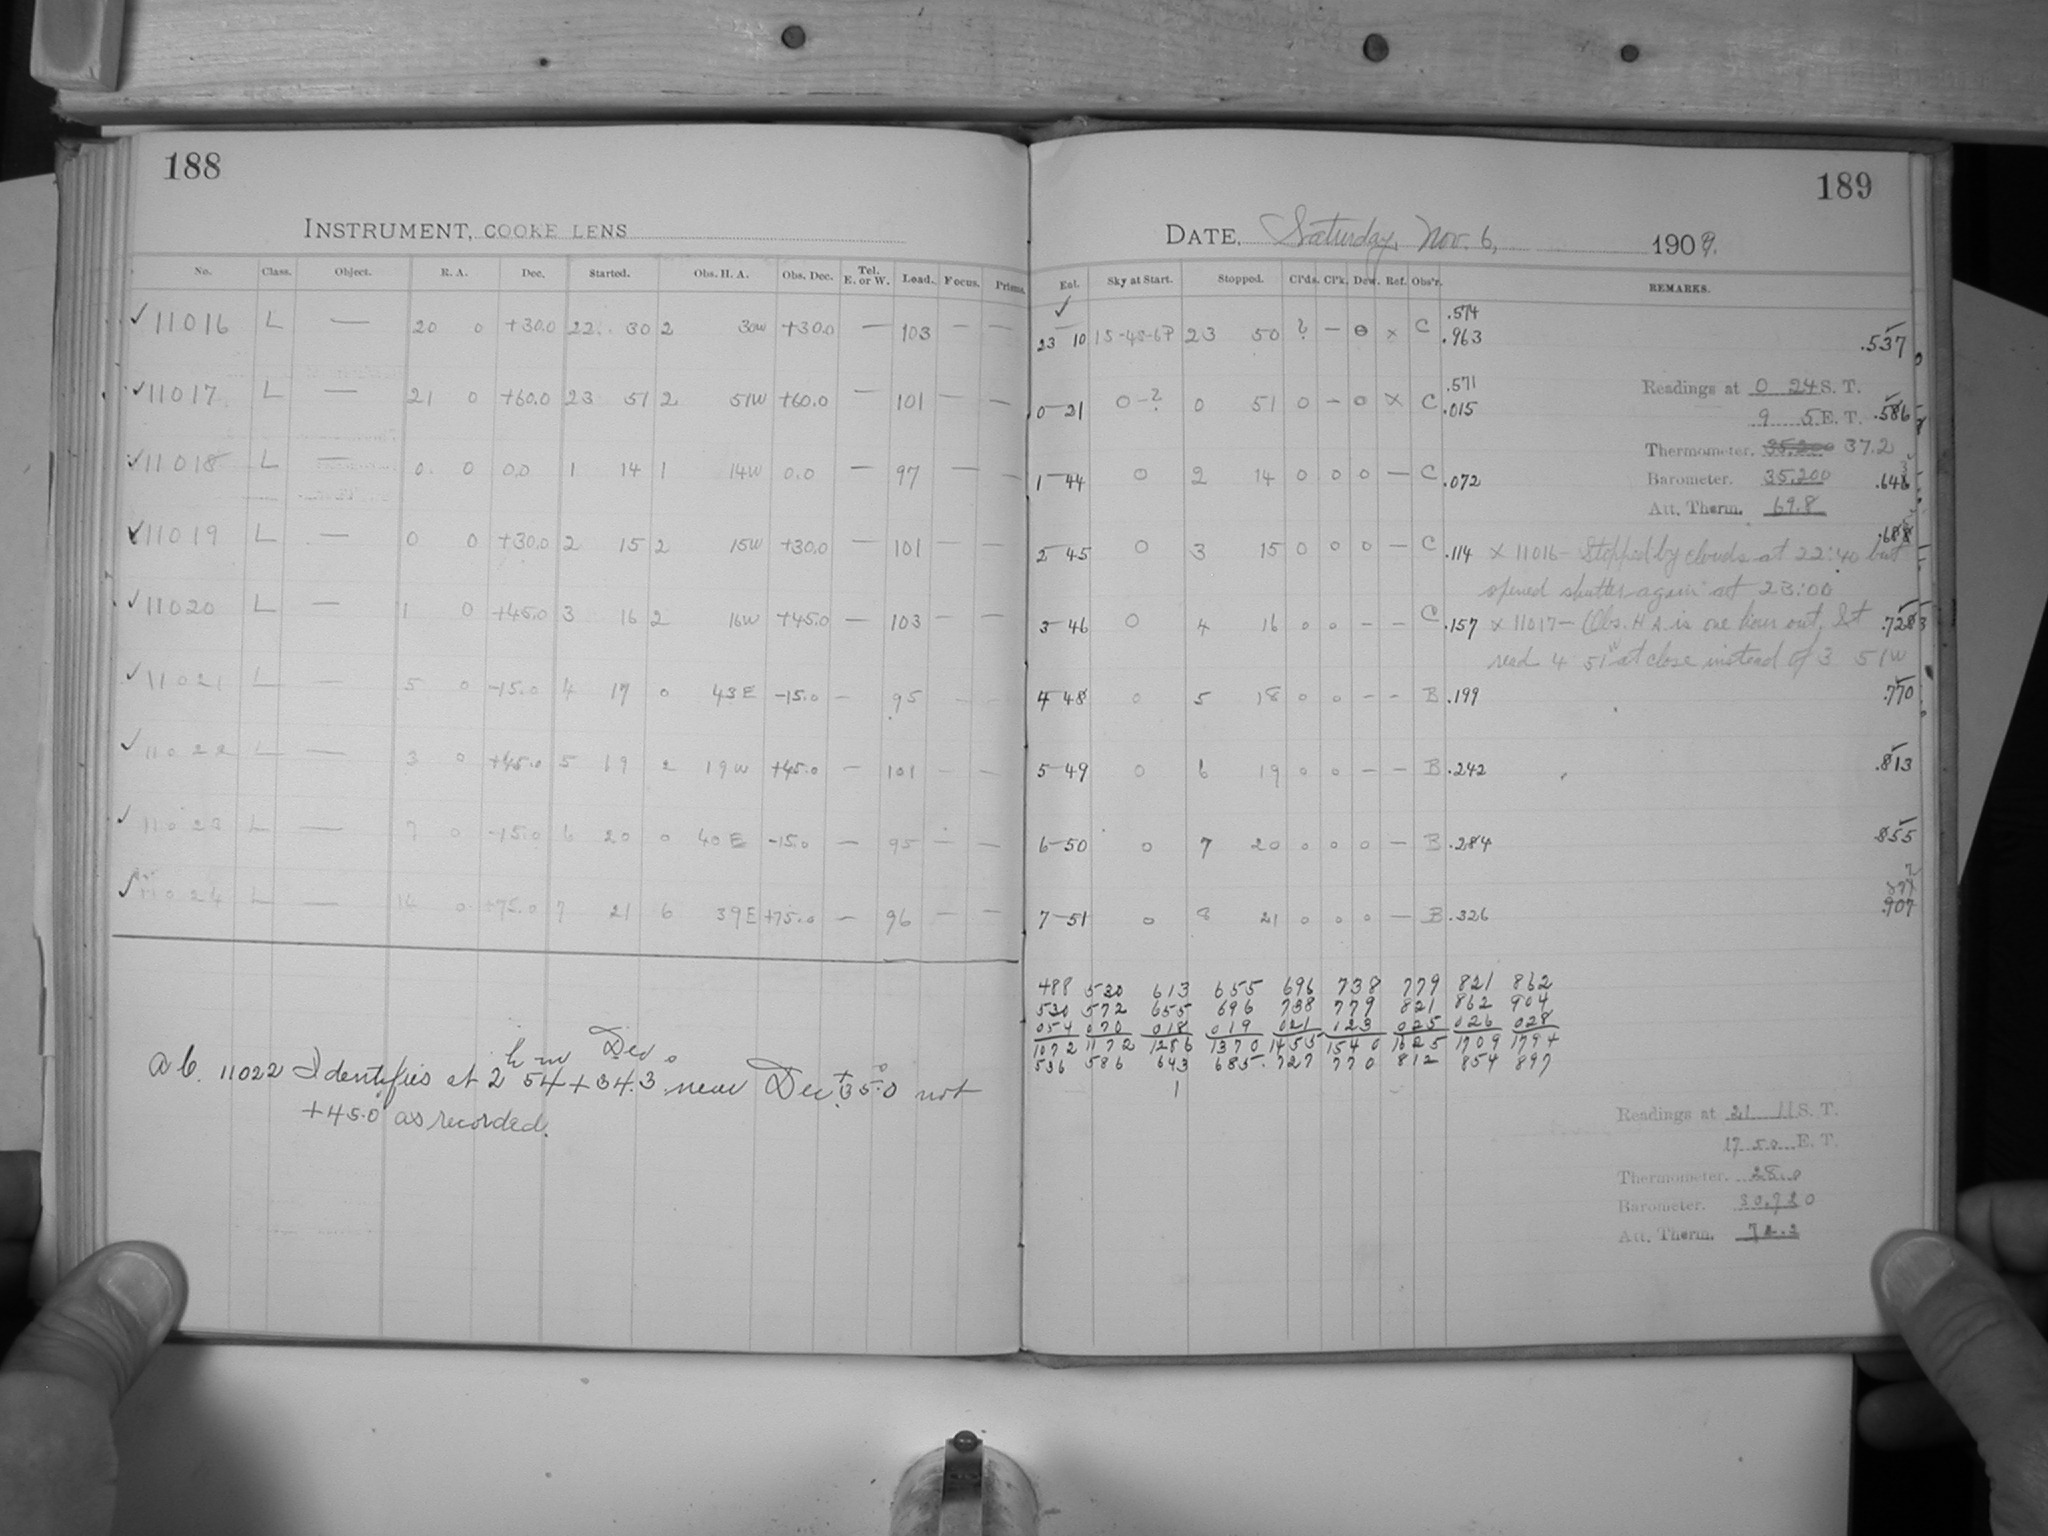 188
INSTRUMENT, COOKE LENS
No. Class. Object. R. A. Dec. Started. Obs. H. A. Obs. Dec. Tel. E. or W. Load. Focus. Prisms.
✓ 11016 L — 20 0 +30.0 22 30 2 30W +30.0 — 103 — —
✓ 11017 L — 21 0 +60.0 23 51 2 51W +60.0 — 101 — —
✓ 11018 L — 0 0 0.0 1 14 1 14W 0.0 — 97 — —
✓ 11019 L — 0 0 +30.0 2 15 2 15W +30.0 — 101 — —
✓ 11020 L — 1 0 +45.0 3 16 2 16W +45.0 — 103 — —
✓ 11021 L — 5 0 -15.0 4 17 0 43E -15.0 — 95 — —
✓ 11022 L — 3 0 +45.0 5 19 2 19W +45.0 — 101 — —
✓ 11023 L — 7 0 -15.0 6 20 0 40E -15.0 — 95 — —
✓ 11024 L — 14 0 +75.0 7 21 6 39E +75.0 — 96 — —
a b. 11022 Identifies at 2h 54m + 34.3 near Dec. +35.0 not
+45.0 as recorded.
189
DATE, Saturday, Nov. 6, 1909.
Sky at Start. Stopped. Cl'ds. Cl'k. Dew. Ref. Obs'r. REMARKS.
23 10 15-45-6P 23 50 ? — 0 x C .574 .963 .537
0-21 0-? 0 51 0 — 0 x C .571 .015 .586
1-44 0 2 14 0 0 0 — C .072
2-45 0 3 15 0 0 0 — C .114 .688
3-46 0 4 16 0 0 — — C .157
4 48 0 5 18 0 0 — — B .199 .770
5-49 0 6 19 0 0 — — B .242 .813
6-50 0 7 20 0 0 0 — B .284 855
7-51 0 8 21 0 0 0 — B .326 .907
Readings at 0 24 S. T.
9 5 E. T.
Thermometer. 37.2
Barometer. 35.200
Att. Therm. 69.8
x 11016 - Stopped by clouds at 22:40 but
opened shutter again at 23:00
x 11017 - Obs. H A is one hour out. It
read 4 51W at close instead of 3 51W
488 530 613 655 696 738 779 821 862
530 572 655 696 738 779 821 862 904
054 070 018 019 021 123 025 026 028
1072 1172 1286 1370 1455 1540 1625 1709 1794
536 586 643 685. 727 770 812 854 897
1
Readings at 21 11 S. T.
17 50 E. T.
Thermometer. 28.0
Barometer.
Att. Therm.